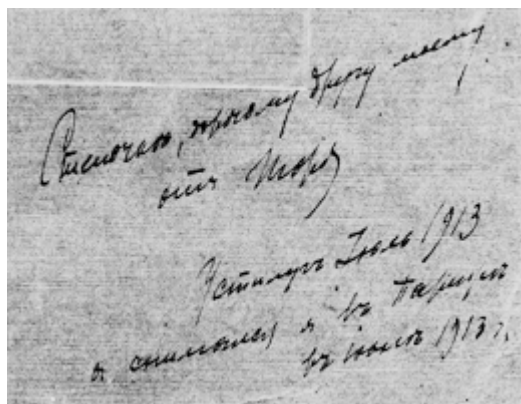 Степочкѣ, дорогому другу моему
отъ Игоря
Устилугъ Iюль 1913
а снимался я въ Парижѣ
въ iюнѣ 1913 г.